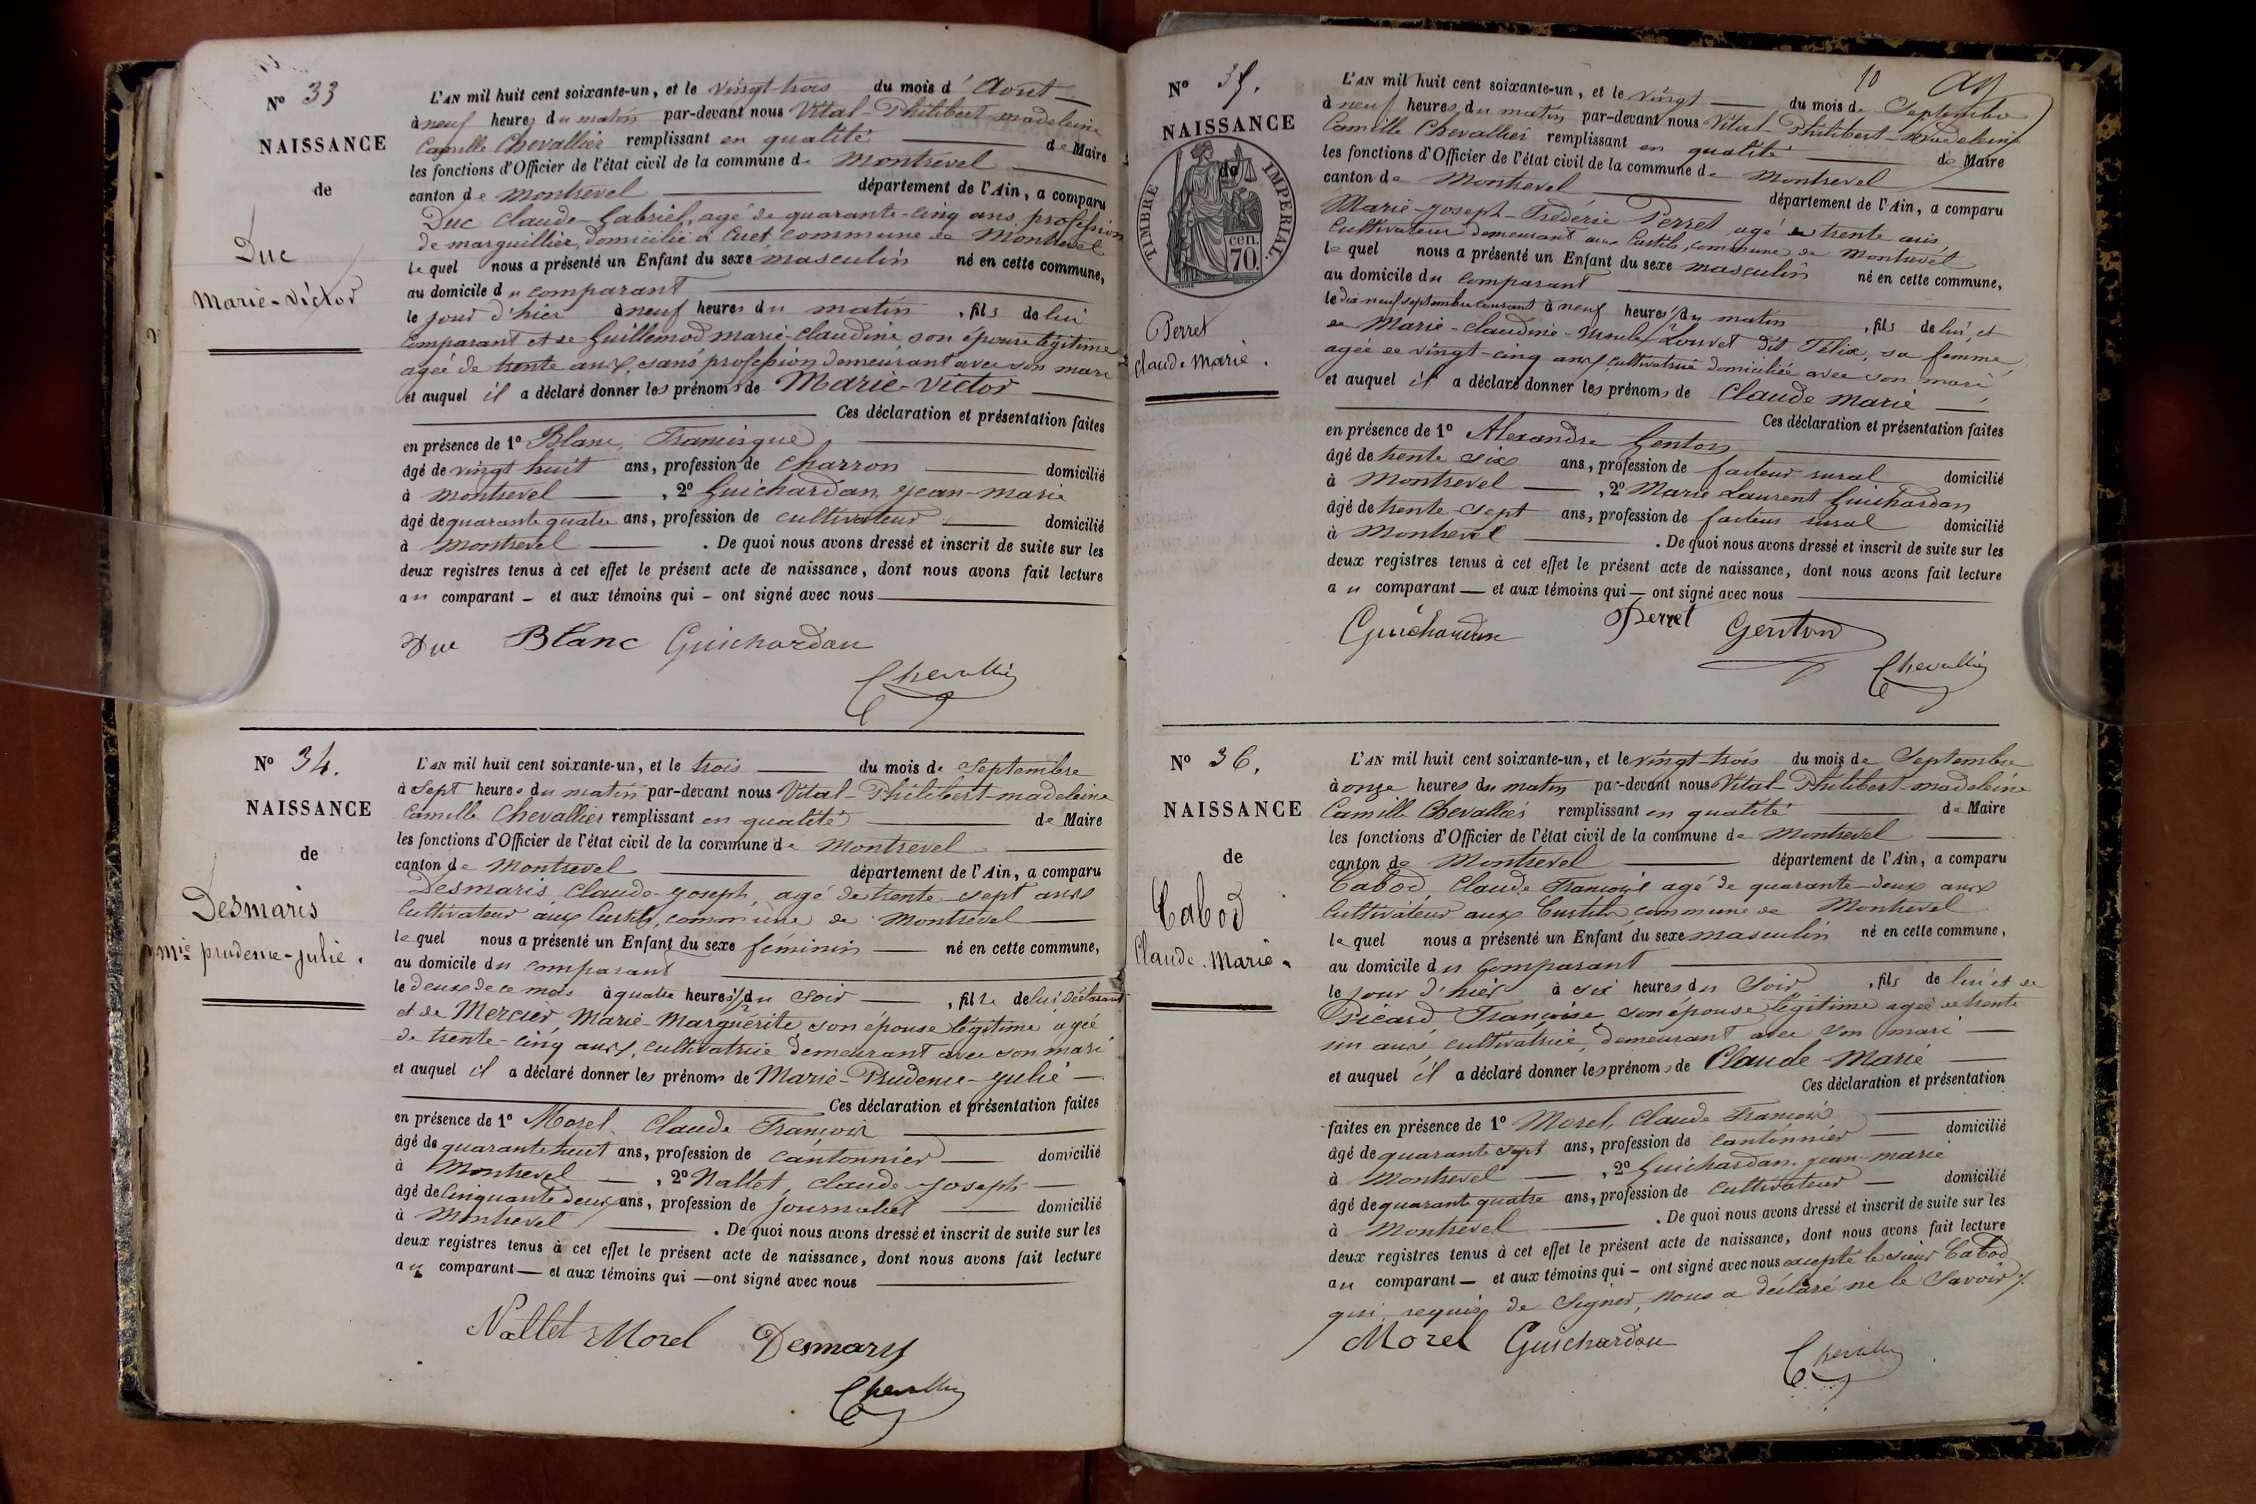 Nº 33
NAISSANCE
de
Duc
Marie-Victor
L'AN mil huit cent soixante-un, et le vingt-trois du mois d'Aout
à neuf heures du matin par-devant nous Vital-Philibert-madeleine
Camille Chevallier remplissant en qualité de Maire
les fonctions d'Officier de l'état civil de la commune de Montrevel
canton de Montrevel département de l'Ain, a comparu
Duc Claude-Gabriel, agé de quarante-cinq ans, profession
de marguillier, domicilié à Cuet, commune de Montrevel
lequel nous a présenté un Enfant du sexe masculin né en cette commune,
au domicile du comparant
le jour d'hier à neuf heures du matin, fils de lui
comparant et de Guillemod marie-claudine, son épouse légitime
agée de trente ans, sans profession demeurant avec son mari
et auquel il a déclaré donner les prénoms de Marie-Victor
Ces déclaration et présentation faites
en présence de 1º Blanc, Francisque
âgé de vingt huit ans, profession de charron domicilié
à Montrevel, 2º Guichardan, jean-marie
âgé de quarante quatre ans, profession de cultivateur domicilié
à Montrevel. De quoi nous avons dressé et inscrit de suite sur les
deux registres tenus à cet effet le présent acte de naissance, dont nous avons fait lecture
au comparant et aux témoins qui ont signé avec nous
Duc Blanc Guichardan
Chevallier
Nº 34.
NAISSANCE
de
Desmaris
Mie prudence-julie.
L'AN mil huit cent soixante-un, et le trois du mois de Septembre
à sept heures du matin par-devant nous Vital-Philibert-madeleine
Camille Chevallier remplissant en qualité de Maire
les fonctions d'Officier de l'état civil de la commune de Montrevel
canton de Montrevel département de l'Ain, a comparu
Desmaris, Claude-joseph, agé de trente sept ans
Cultivateur aux Curtils, commune de Montrevel
lequel nous a présenté un Enfant du sexe féminin né en cette commune,
au domicile du comparant
le deux de ce mois à quatre heures 1/2 du soir, fille de lui déclarant
et de Mercier, Marie-Marguerite, son épouse légitime agée
de trente-cinq ans, cultivatrice demeurant avec son mari
et auquel il a déclaré donner les prénoms de Marie-Prudence-Julie
Ces déclaration et présentation faites
en présence de 1º Morel, Claude François
âgé de quarante huit ans, profession de cantonnier domicilié
à Montrevel, 2º Nallet, Claude-Joseph
âgé de cinquante deux ans, profession de journalier domicilié
à Montrevel. De quoi nous avons dressé et inscrit de suite sur les
deux registres tenus à cet effet le présent acte de naissance, dont nous avons fait lecture
au comparant et aux témoins qui ont signé avec nous
Nallet Morel Desmary
Chevallier
10
Nº 35.
NAISSANCE
de
TIMBRE IMPERIAL.
70 cen.
Perret
Claude Marie.
L'AN mil huit cent soixante-un, et le vingt du mois de Septembre
à neuf heures du matin par-devant nous Vital-Philibert-Madeleine
Camille Chevallier remplissant en qualité de Maire
les fonctions d'Officier de l'état civil de la commune de Montrevel
canton de Montrevel département de l'Ain, a comparu
Marie-Joseph-Frédéric Perret, agé de trente ans,
Cultivateur demeurant aux Curtils, commune de Montrevel
lequel nous a présenté un Enfant du sexe masculin né en cette commune,
au domicile du comparant
le dix neuf septembre courant à neuf heures 1/2 du matin, fils de lui, et
de Marie-Claudine- Louvet dit Félix, sa femme,
agée de vingt-cinq ans, cultivatrice domiciliée avec son mari
et auquel il a déclaré donner les prénoms de Claude Marie
Ces déclaration et présentation faites
en présence de 1º Alexandre Genton
âgé de trente six ans, profession de facteur rural domicilié
à Montrevel, 2º Marie Laurent Guichardan
âgé de trente-sept ans, profession de facteur rural domicilié
à Montrevel. De quoi nous avons dressé et inscrit de suite sur les
deux registres tenus à cet effet le présent acte de naissance, dont nous avons fait lecture
au comparant et aux témoins qui ont signé avec nous
Guichardan Perret Genton
Chevallier
Nº 36.
NAISSANCE
de
Cabod
Claude-Marie.
L'AN mil huit cent soixante-un, et le vingt-trois du mois de Septembre
à onze heures du matin par-devant nous Vital-Philibert-madeleine
Camille Chevallier remplissant en qualité de Maire
les fonctions d'Officier de l'état civil de la commune de Montrevel
canton de Montrevel département de l'Ain, a comparu
Cabod, Claude François agé de quarante-deux ans
Cultivateur aux Curtils commune de Montrevel
lequel nous a présenté un Enfant du sexe masculin né en cette commune,
au domicile du comparant
le jour d'hier à six heures du soir, fils de lui et de
Picard Françoise, son épouse légitime agée de trente
un ans cultivatrice, demeurant avec son mari
et auquel il a déclaré donner les prénoms de Claude Marie
Ces déclaration et présentation
faites en présence de 1º Morel, Claude François
âgé de quarante sept ans, profession de cantonnier domicilié
à Montrevel, 2º Guichardan jean-marie
âgé de quarante quatre ans, profession de cultivateur domicilié
à Montrevel. De quoi nous avons dressé et inscrit de suite sur les
deux registres tenus à cet effet le présent acte de naissance, dont nous avons fait lecture
au comparant et aux témoins qui ont signé avec nous excepté le sieur Cabod
qui, requis de signer, nous a déclaré ne le savoir
Morel Guichardan
Chevallier